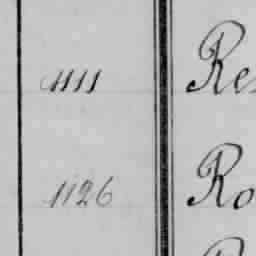 1111 Res
1126 Ro